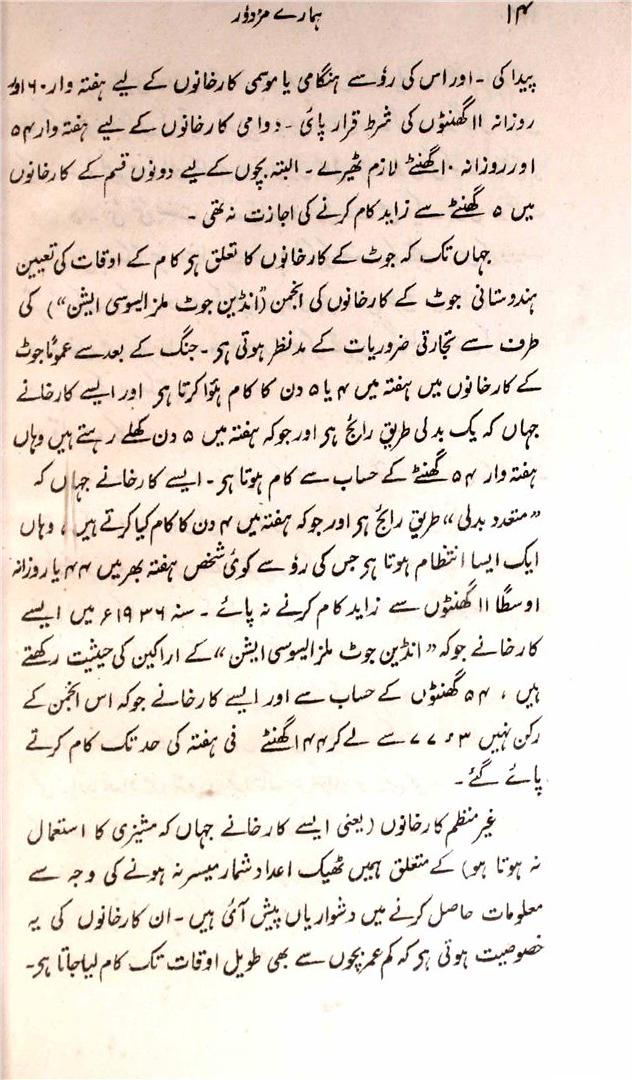 ۱۴ ہمارے مزدور
پیدا کی ۔ اور اس کی رؤسے ہنگامی یا موسمی کارخانوں کے لیے ہفتہ وار ۶۰ اور
روزانہ ۱۱ گھنٹوں کی شرط قرار پائی ۔ دوامی کارخانوں کے لیے ہفتہ وار ۵۴
اور روزانہ ۱۰ گھنٹے لازم ٹھیرے ۔ البتہ بچوں کے لیے دونوں قسم کے کارخانوں
میں ۵ گھنٹے سے زاید کام کرنے کی اجازت نہ تھی ۔
جہاں تک کہ جوٹ کے کارخانوں کا تعلق ہر کام کے اوقات کی تعیین
ہندوستانی جوٹ کے کارخانوں کی انجمن (“انڈین جوٹ ملز ایسوسی ایشن“) کی
طرف سے تجارتی ضروریات کے مدنظر ہوتی ہر ۔ جنگ کے بعد سے عموًما جوٹ
کے کارخانوں میں ہفتہ میں ۴ یا ۵ دن کا کام ہؤا کرتا ہر اور ایسے کارخانے
جہاں کہ یک بدلی طریق رائج ہر اور جوکہ ہفتہ میں ۵ دن کھلے رہتے ہیں وہاں
ہفتہ وار ۵۴ گھنٹے کے حساب سے کام ہوتا ہر ۔ ایسے کارخانے جہاں کہ
”متعدد بدلی“ طریق رائج ہر اور جوکہ ہفتہ میں ۴ دن کا کام کیا کرتے ہیں ، وہاں
ایک ایسا انتظام ہوتا ہر جس کی رؤ سے کوئی شخص ہفتہ بھر میں ۴۴ یا روزانہ
اوسطًا ۱۱ گھنٹوں سے زاید کام کرنے نہ پائے ۔ سنہ ۱۹۳۶ء میں ایسے
کارخانے جوکہ ”انڈین جوٹ ملز ایسوسی ایشن“ کے اراکین کی حیثیت رکھتے
ہیں ، ۵۴ گھنٹوں کے حساب سے اور ایسے کارخانے جوکہ اس انجمن کے
رکن نہیں ۷۷ء۳ سے لے کر ۱۴۴ گھنٹے فی ہفتہ کی حد تک کام کرتے
پائے گئے ۔
غیر منظم کارخانوں (یعنی ایسے کارخانے جہاں کہ مشینری کا استعمال
نہ ہوتا ہو) کے متعلق ہمیں ٹھیک اعداد شمار میسر نہ ہونے کی وجہ سے
معلومات حاصل کرنے میں دشواریاں پیش آئی ہیں ۔ ان کارخانوں کی یہ
خصوصیت ہوتی ہر کہ کم عمر بچوں سے بھی طویل اوقات تک کام لیا جاتا ہر ۔